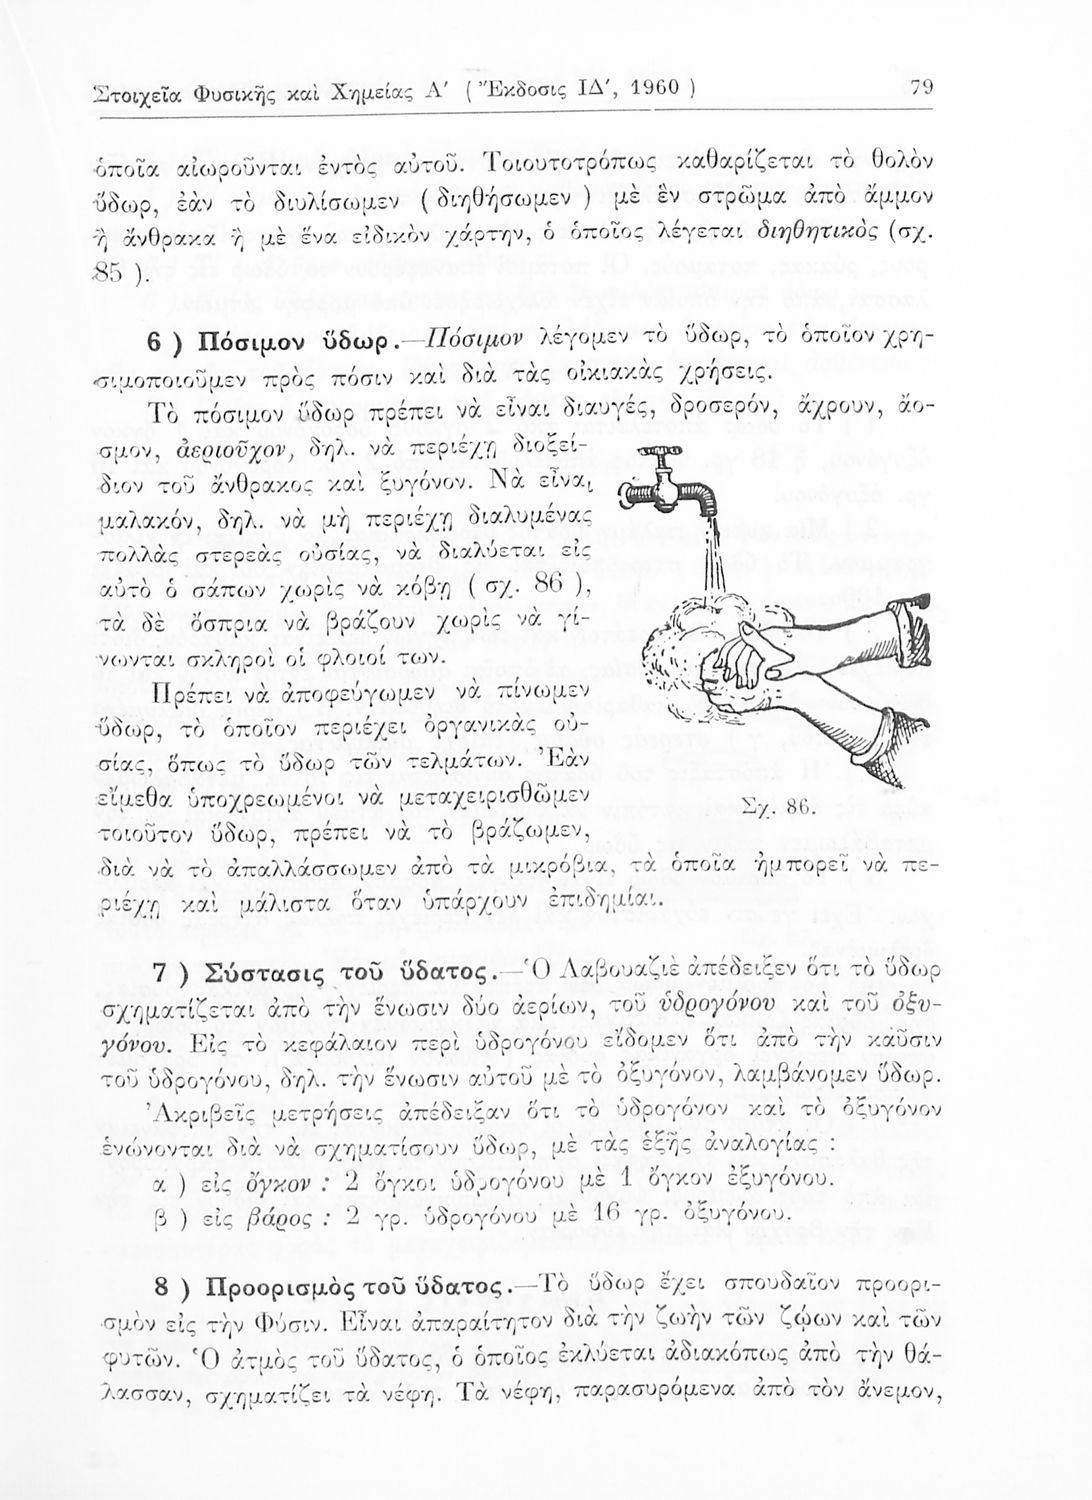 Στοιχεῖα Φυσικῆς καὶ Χημείας Α΄ ( Ἔκδοσις ΙΔ΄, 1960 ) 79
ὁποῖα αἰωροῦνται ἐντὸς αὐτοῦ. Τοιουτοτρόπως καθαρίζεται τὸ θολὸν
ὕδωρ, ἐὰν τὸ διυλίσωμεν ( διηθήσωμεν ) μὲ ἓν στρῶμα ἀπὸ ἄμμον
ἢ ἄνθρακα ἢ μὲ ἕνα εἰδικὸν χάρτην, ὁ ὁποῖος λέγεται διηθητικὸς (σχ.
85 ).
6 ) Πόσιμον ὕδωρ.—Πόσιμον λέγομεν τὸ ὕδωρ, τὸ ὁποῖον χρη-
σιμοποιοῦμεν πρὸς πόσιν καὶ διὰ τὰς οἰκιακὰς χρήσεις.
Τὸ πόσιμον ὕδωρ πρέπει νὰ εἶναι διαυγές, δροσερόν, ἄχρουν, ἄο-
σμον, ἀεριοῦχον, δηλ. νὰ περιέχῃ διοξεί-
διον τοῦ ἄνθρακος καὶ ξυγόνον. Νὰ εἶναι
μαλακόν, δηλ. νὰ μὴ περιέχῃ διαλυμένας
πολλὰς στερεὰς οὐσίας, νὰ διαλύεται εἰς
αὐτὸ ὁ σάπων χωρὶς νὰ κόβῃ ( σχ. 86 ),
τὰ δὲ ὄσπρια νὰ βράζουν χωρὶς νὰ γί-
νωνται σκληροὶ οἱ φλοιοί των.
Πρέπει νὰ ἀποφεύγωμεν νὰ πίνωμεν
ὕδωρ, τὸ ὁποῖον περιέχει ὀργανικὰς οὐ-
σίας, ὅπως τὸ ὕδωρ τῶν τελμάτων. Ἐὰν
εἴμεθα ὑποχρεωμένοι νὰ μεταχειρισθῶμεν
τοιοῦτον ὕδωρ, πρέπει νὰ τὸ βράζωμεν,
διὰ νὰ τὸ ἀπαλλάσσωμεν ἀπὸ τὰ μικρόβια, τὰ ὁποῖα ἠμπορεῖ νὰ πε-
ριέχῃ καὶ μάλιστα ὅταν ὑπάρχουν ἐπιδημίαι.
Σχ. 86.
7 ) Σύστασις τοῦ ὕδατος.—Ὁ Λαβουαζιὲ ἀπέδειξεν ὅτι τὸ ὕδωρ
σχηματίζεται ἀπὸ τὴν ἕνωσιν δύο ἀερίων, τοῦ ὑδρογόνου καὶ τοῦ ὀξυ-
γόνου. Εἰς τὸ κεφάλαιον περὶ ὑδρογόνου εἴδομεν ὅτι ἀπὸ τὴν καῦσιν
τοῦ ὑδρογόνου, δηλ. τὴν ἕνωσιν αὐτοῦ μὲ τὸ ὀξυγόνον, λαμβάνομεν ὕδωρ.
Ἀκριβεῖς μετρήσεις ἀπέδειξαν ὅτι τὸ ὑδρογόνον καὶ τὸ ὀξυγόνον
ἑνώνονται διὰ νὰ σχηματίσουν ὕδωρ, μὲ τὰς ἑξῆς ἀναλογίας :
α ) εἰς ὄγκον : 2 ὄγκοι ὑδρογόνου μὲ 1 ὄγκον ἐξυγόνου.
β ) εἰς βάρος : 2 γρ. ὑδρογόνου μὲ 16 γρ. ὀξυγόνου.
8 ) Προορισμὸς τοῦ ὕδατος.—Τὸ ὕδωρ ἔχει σπουδαῖον προορι-
σμὸν εἰς τὴν Φύσιν. Εἶναι ἀπαραίτητον διὰ τὴν ζωὴν τῶν ζῴων καὶ τῶν
φυτῶν. Ὁ ἀτμὸς τοῦ ὕδατος, ὁ ὁποῖος ἐκλύεται ἀδιακόπως ἀπὸ τὴν θά-
λασσαν, σχηματίζει τὰ νέφη. Τὰ νέφη, παρασυρόμενα ἀπὸ τὸν ἄνεμον,